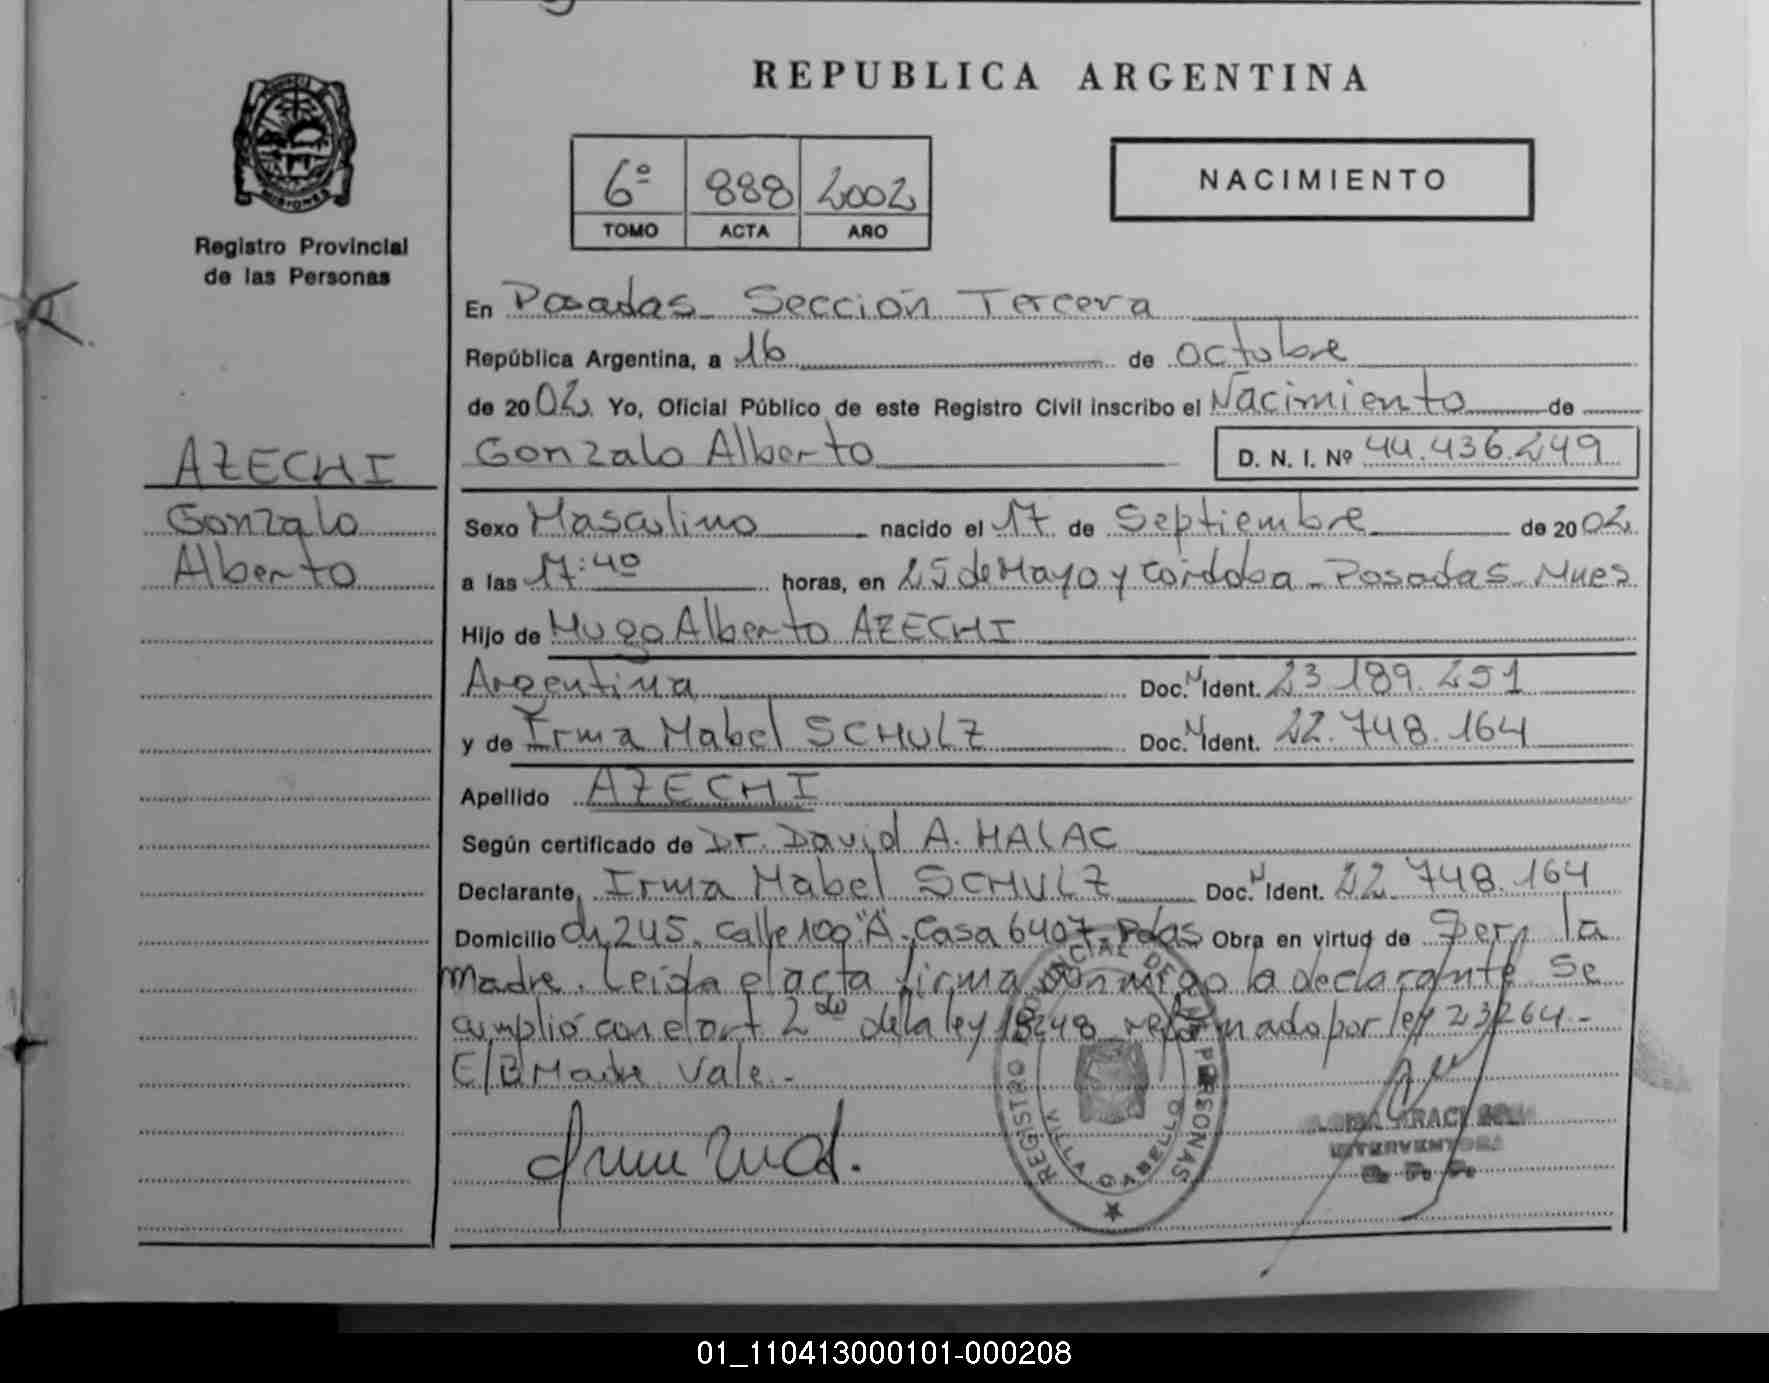 REPUBLICA ARGENTINA
MISIONES
Registro Provincial
de las Personas
6º 888 2002
TOMO ACTA AÑO
NACIMIENTO
En Posadas Sección Tercera
República Argentina, a 16 de octubre
de 2002. Yo, Oficial Público de este Registro Civil inscribo el Nacimiento de
AZECHI
Gonzalo
Alberto
Gonzalo Alberto D. N. I. Nº 44.436.249
Sexo Masculino nacido el 17 de Septiembre de 2002
a las 17:40 horas, en 25 de Mayo y Cordoba - Posadas Mnes
Hijo de Hugo Alberto AZECHI
Argentina Doc. N Ident. 23.189.251
y de Irma Mabel SCHULZ Doc. N Ident. 22.748.164
Apellido AZECHI
Según certificado de Dr. David A. MALAC
Declarante, Irma Mabel SCHULZ Doc. N Ident. 22.748.164
Domicilio ch 245. calle 109 "A". Casa 6407 Pdas Obra en virtud de Ser la
madre. Leída el acta firma conmigo la declarante Se
cumplió con el art 2do de la ley 18248 reformado por ley 23264.-
E/B Madre Vale.-
REGISTRO PROVINCIAL DE LAS PERSONAS
VILLA CABELLO
INTERVENTORA
01_110413000101-000208